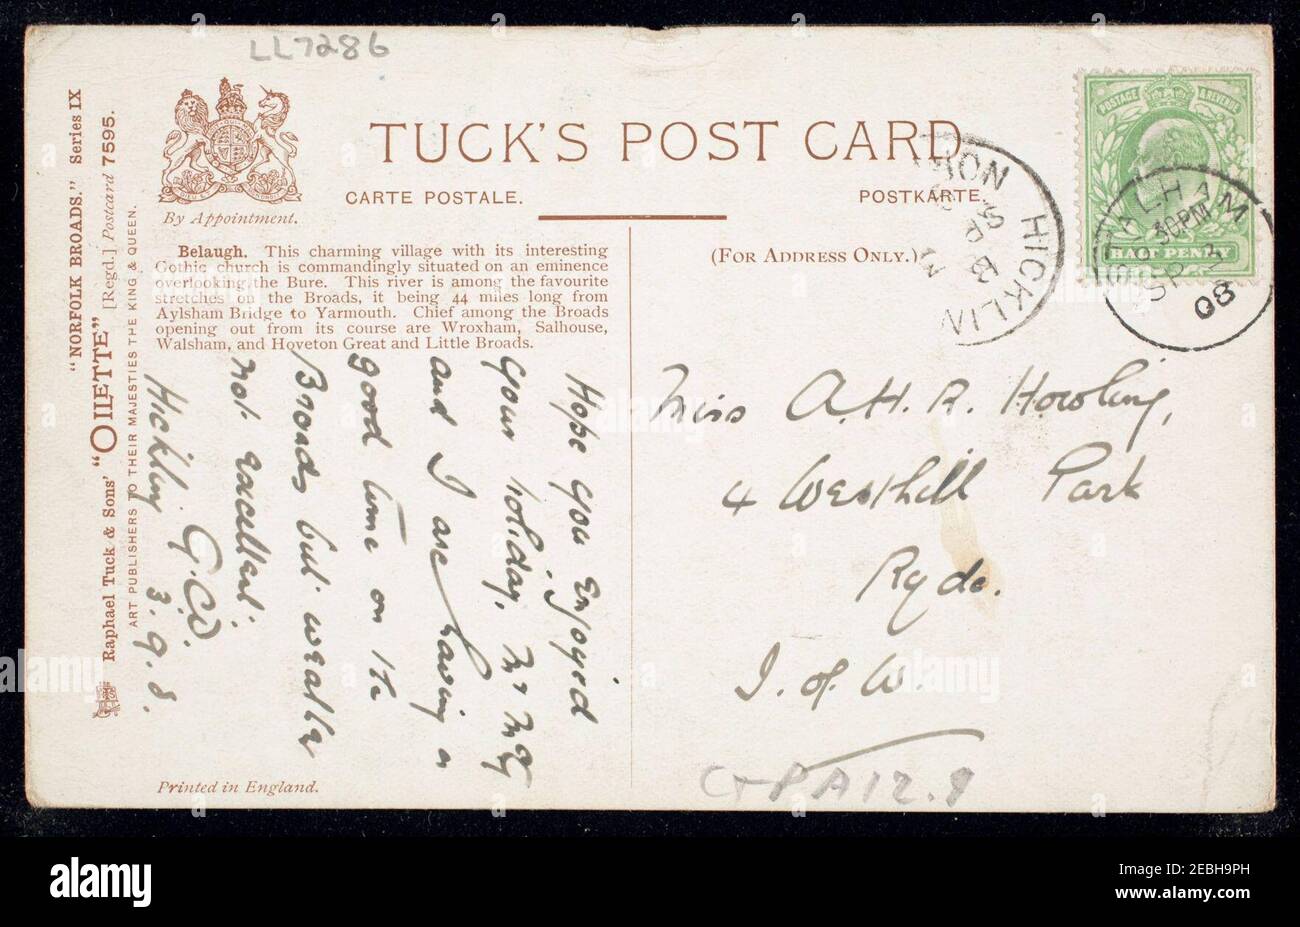 LL7286
TUCK'S POST CARD
CARTE POSTALE.
POSTKARTE.
By Appointment.
(FOR ADDRESS ONLY.)
"NORFOLK BROADS." Series IX
Raphael Tuck & Sons' "OILETTE" [Regd.] Postcard 7595.
ART PUBLISHERS TO THEIR MAJESTIES THE KING & QUEEN.
Belaugh. This charming village with its interesting
Gothic church is commandingly situated on an eminence
overlooking the Bure. This river is among the favourite
stretches on the Broads, it being 44 miles long from
Aylsham Bridge to Yarmouth. Chief among the Broads
opening out from its course are Wroxham, Salhouse,
Walsham, and Hoveton Great and Little Broads.
Hope you Enjoyed
your holiday,
and I are having a
good time on the
Broads but weather
not excellent.
G.C.W.
Hickling 3.9.8.
Printed in England.
POSTAGE & REVENUE
HALF PENNY
HICKLIN
SP 3
STALHAM
30PM
SP 3
08
Miss A.H.R. Howling,
4 Westhill Park
Ryde.
I. of. W.
alamy
Image ID: 2EBH9PH
www.alamy.com